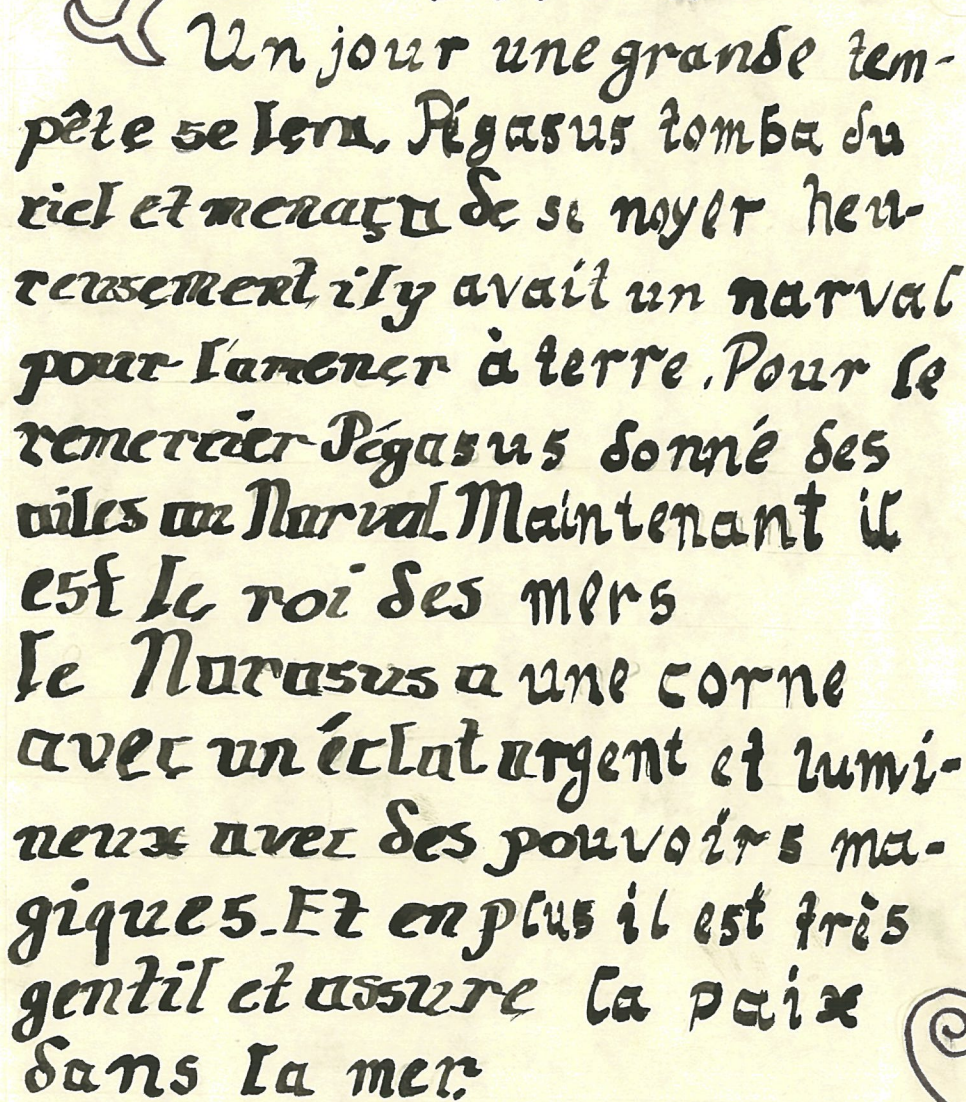 Un jour une grande tem-
pête se leva. Pégasus tomba du
ciel et menaça de se noyer heu-
reusement il y avait un narval
pour l'amener à terre. Pour le
remercier Pégasus donné des
ailes au Narval. Maintenant il
est le roi des mers
le Narasus a une corne
avec un éclat argent et lumi-
neux avec des pouvoirs ma-
giques. Et en plus il est très
gentil et assure la paix
dans la mer.